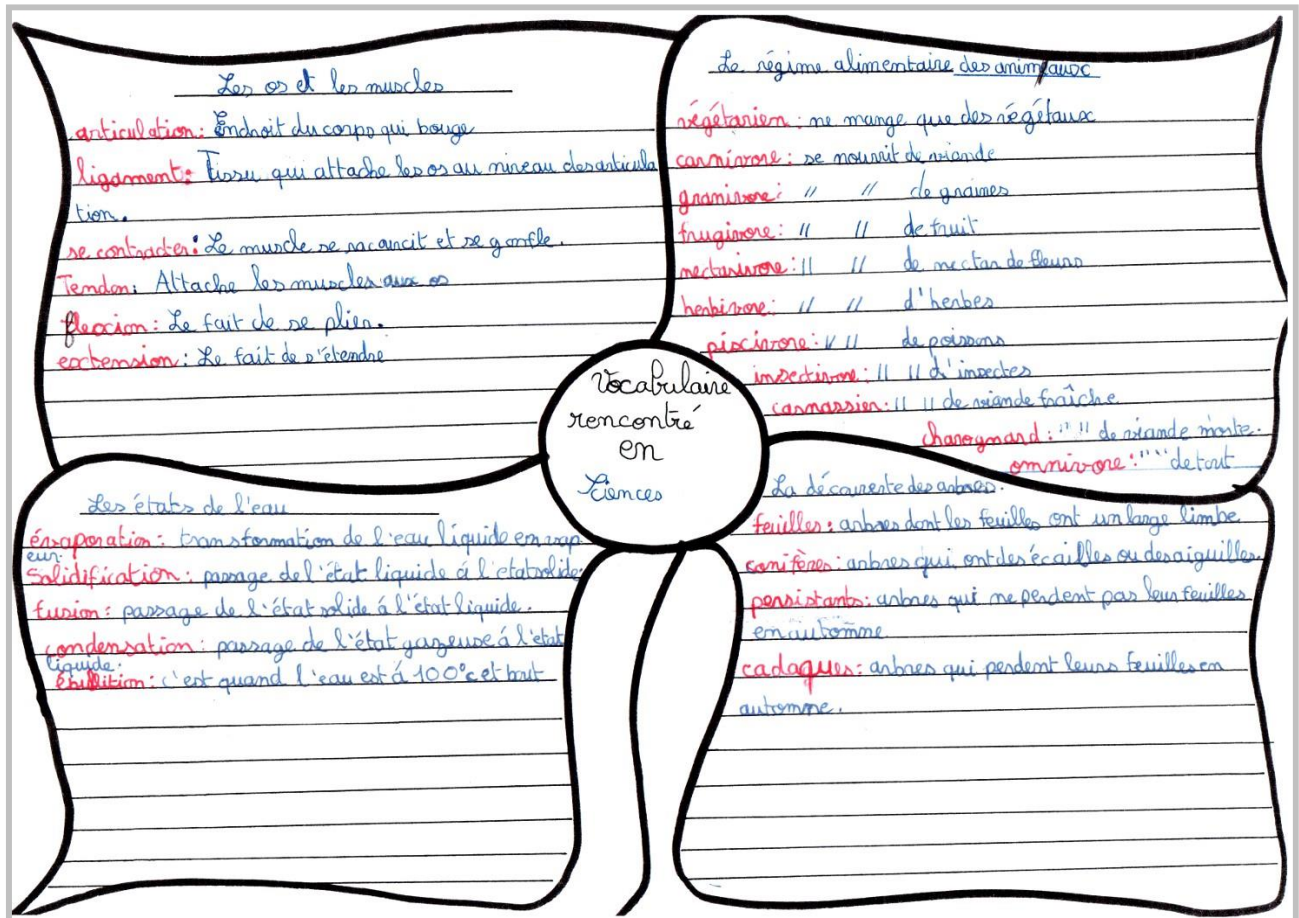 Les os et les muscles
articulation: Endroit du corps qui bouge
ligament: Tissu qui attache les os au niveau des articula
tion.
se contracter: Le muscle se racourcit et se gonfle.
Tendon: Attache les muscles aux os
flexion: Le fait de se plier.
extension: Le fait de s'étendre
Le régime alimentaire des animaux
végétarien: ne mange que des végétaux
carnivore: se nourrit de viande
granivore: " " de graines
frugivore: " " de fruit
nectarivore: " " de nectar de fleurs
herbivore: " " d'herbes
piscivore: " " de poissons
insectivore: " " d'insectes
carnassier: " " de viande fraîche
charognard: " " de viande morte.
omnivore: " " de tout
Vocabulaire
rencontré
en
Sciences
Les états de l'eau
évaporation: transformation de l'eau liquide en vap
eur.
Solidification: passage de l'état liquide à l'etat solide
fusion: passage de l'état solide à l'état liquide.
condensation: passage de l'état gazeuse à l'état
liquide.
ébullition: c'est quand l'eau est à 100°c et bout
La découverte des arbres.
feuilles: arbres dont les feuilles ont un large limbe
conifères: arbres qui ont des écailles ou des aiguilles.
persistants: arbres qui ne perdent pas leur feuilles
en automne
cadaques: arbres qui perdent leurs feuilles en
automne.